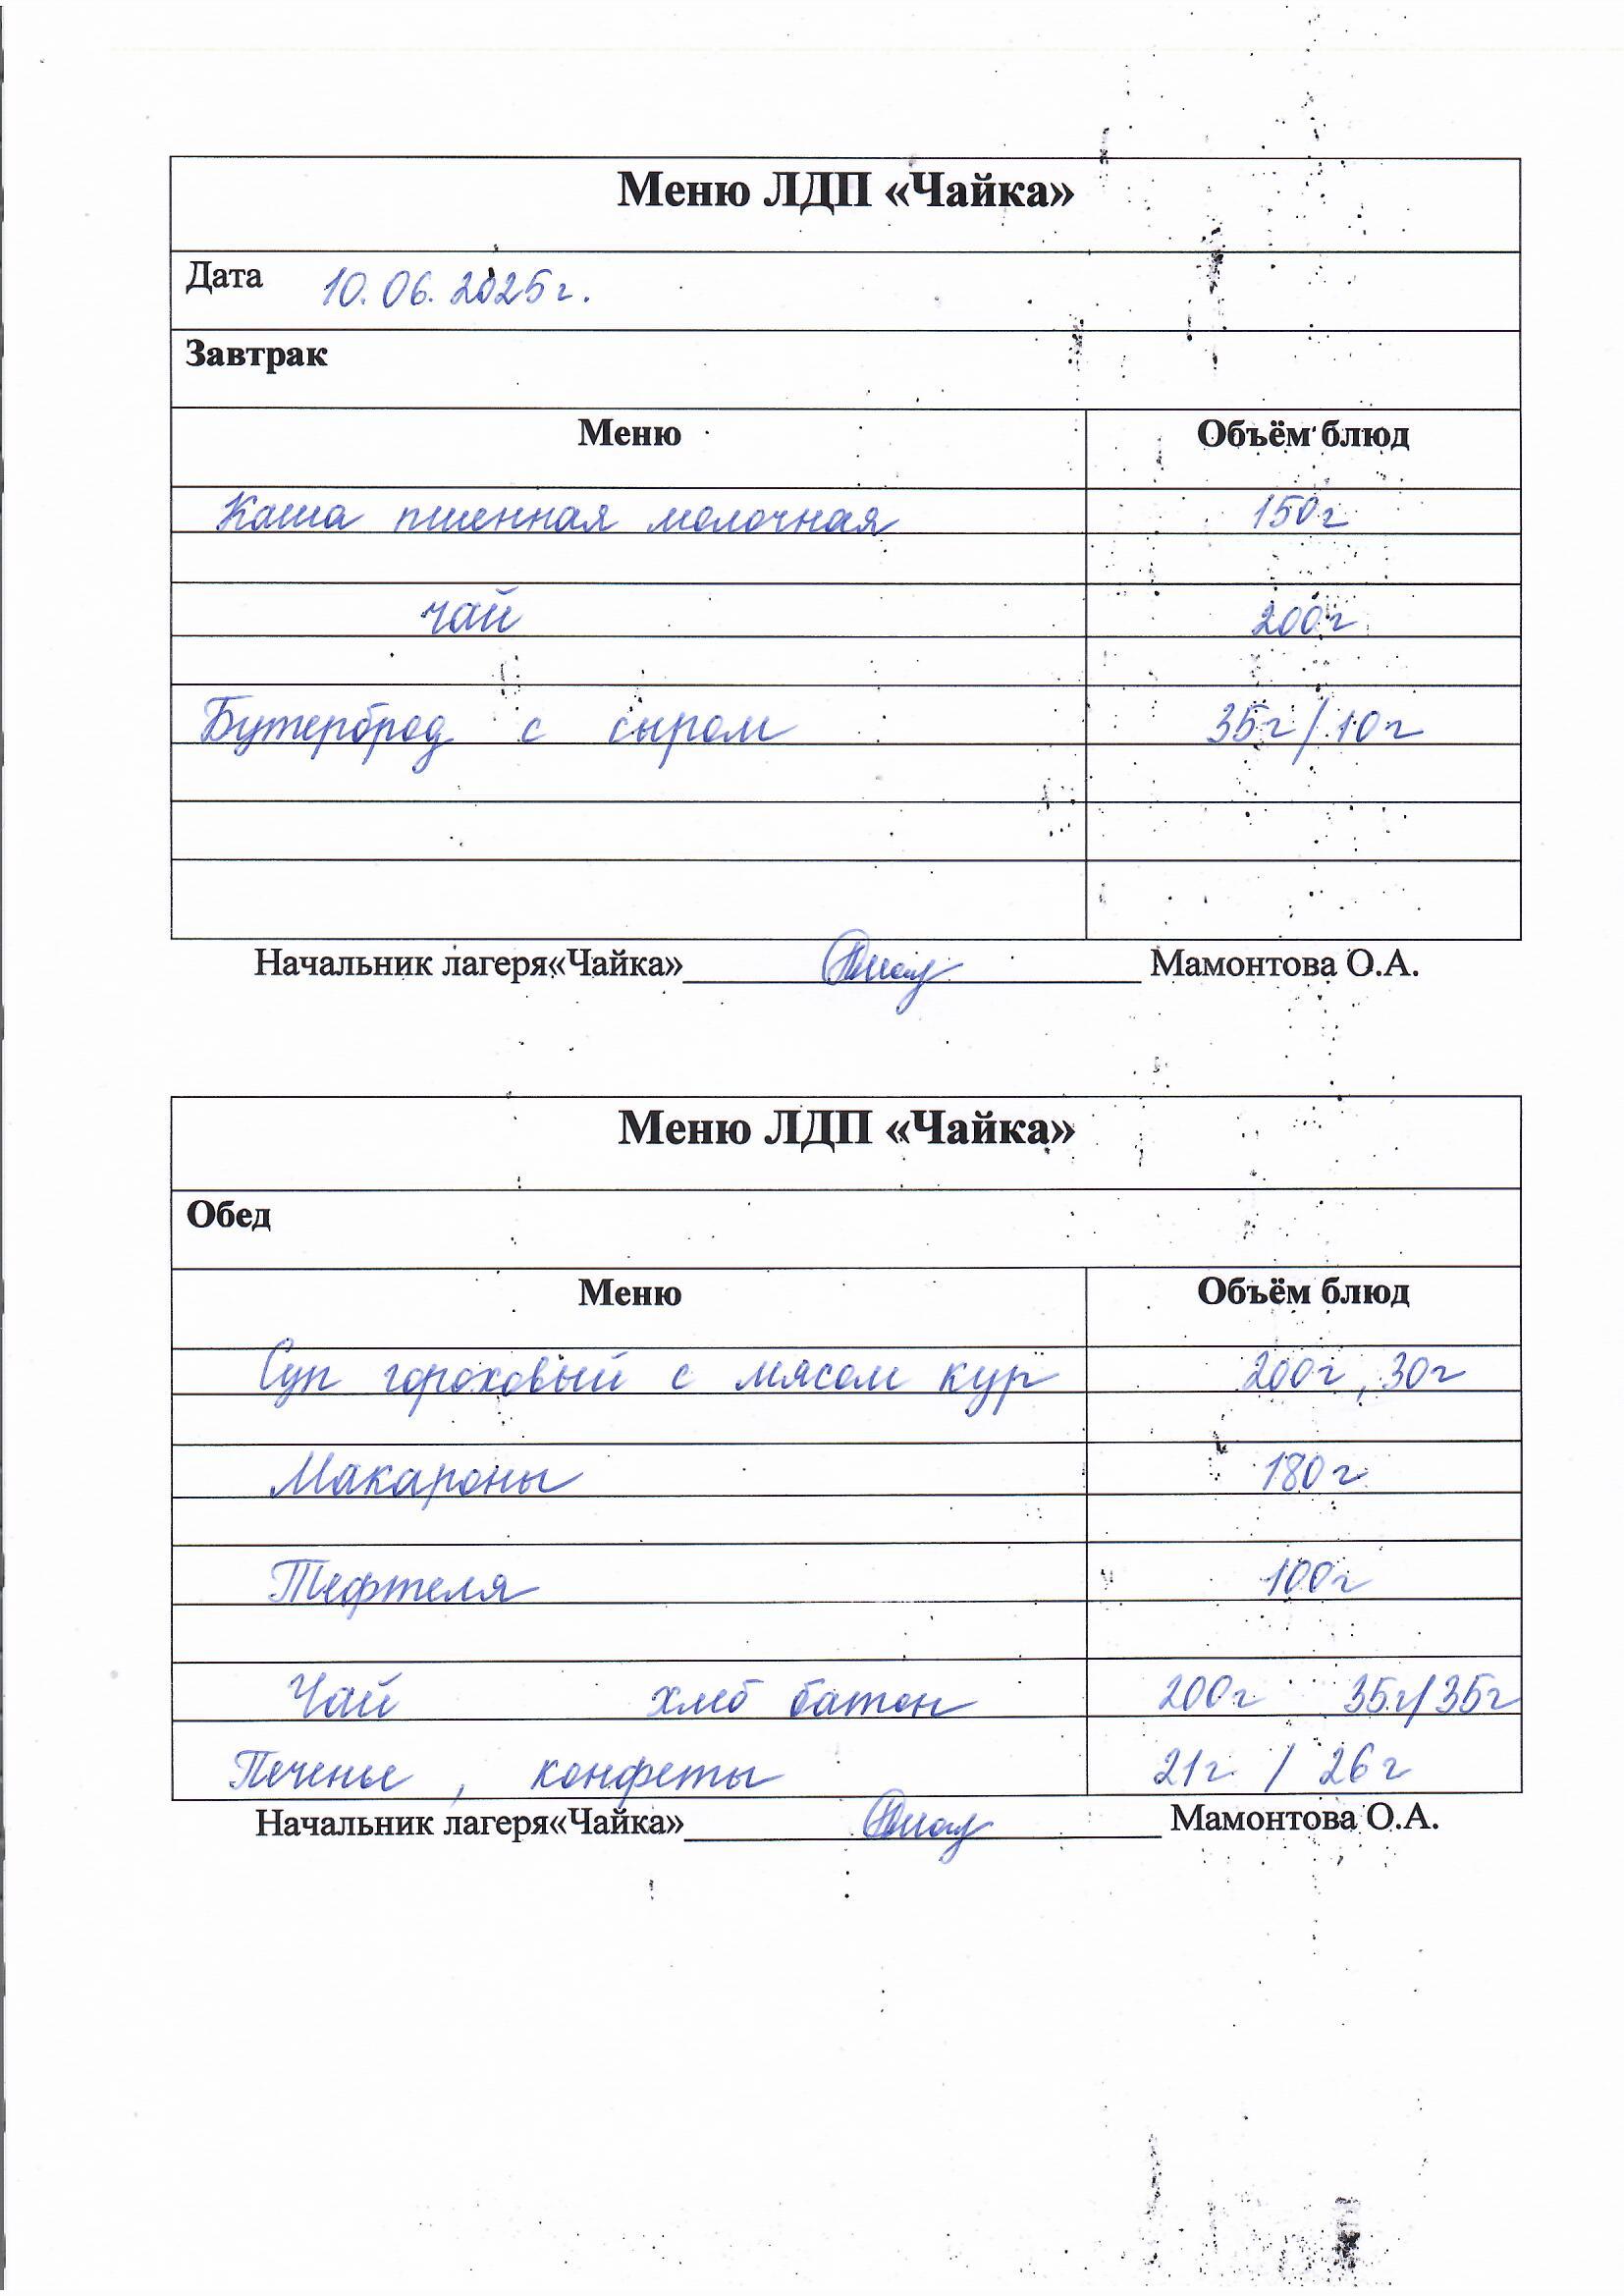 Меню ЛДП «Чайка»
Дата 10.06.2025г.
Завтрак
Меню Объём блюд
Каша пшенная молочная 150г
чай 200г
Бутерброд с сыром 35г/10г
Начальник лагеря«Чайка» Мамонтова О.А.
Меню ЛДП «Чайка»
Обед
Меню Объём блюд
Суп гороховый с мясом кур 200г, 30г
Макароны 180г
Тефтеля 100г
Чай хлеб батон 200г 35г/35г
Печенье , конфеты 21г / 26г
Начальник лагеря«Чайка» Мамонтова О.А.